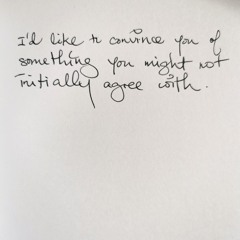 I'd like to convince you of
something you might not
initially agree with.